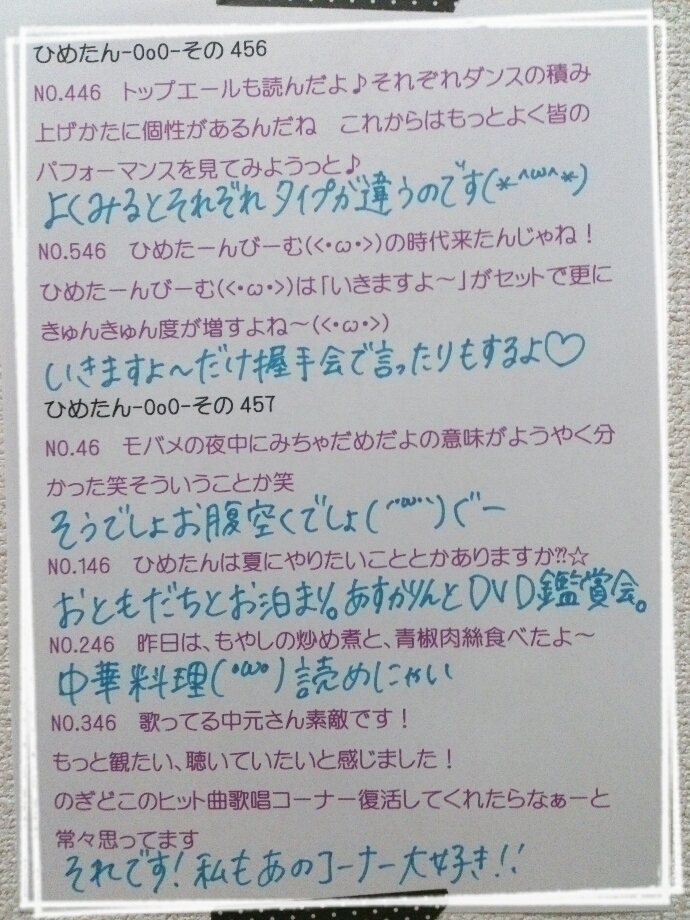 ひめたん-OoO-その456
NO.446 トップエールも読んだよ♪それぞれダンスの積み
上げかたに個性があるんだね これからはもっとよく皆の
パフォーマンスを見てみようっと♪
よくみるとそれぞれタイプが違うのです(*^ω^*)
NO.546 ひめたーんびーむ(<・ω・>)の時代来たんじゃね！
ひめたーんびーむ(<・ω・>)は「いきますよ〜」がセットで更に
きゅんきゅん度が増すよね〜(<・ω・>)
いきますよ〜だけ握手会で言ったりもするよ♡
ひめたん-OoO-その457
NO.46 モバメの夜中にみちゃだめだよの意味がようやく分
かった笑そういうことか笑
そうでしょお腹空くでしょ(´･ω･`)ぐー
NO.146 ひめたんは夏にやりたいこととかありますか⁇☆
おともだちとお泊まり。あすかりんとDVD鑑賞会。
NO.246 昨日は、もやしの炒め煮と、青椒肉絲食べたよ〜
中華料理(･ω･)読めにゃい
NO.346 歌ってる中元さん素敵です！
もっと観たい、聴いていたいと感じました！
のぎどこのヒット曲歌唱コーナー復活してくれたらなぁーと
常々思ってます
それです！私もあのコーナー大好き！！